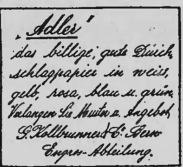 „Adler"
das billige, gute Durch-
schlagpapier in weiss,
gelb, rosa, blau u. grün
Verlangen Sie Muster u. Angebot
G. Kollbrunner & Cº Bern
Engros-Abteilung.